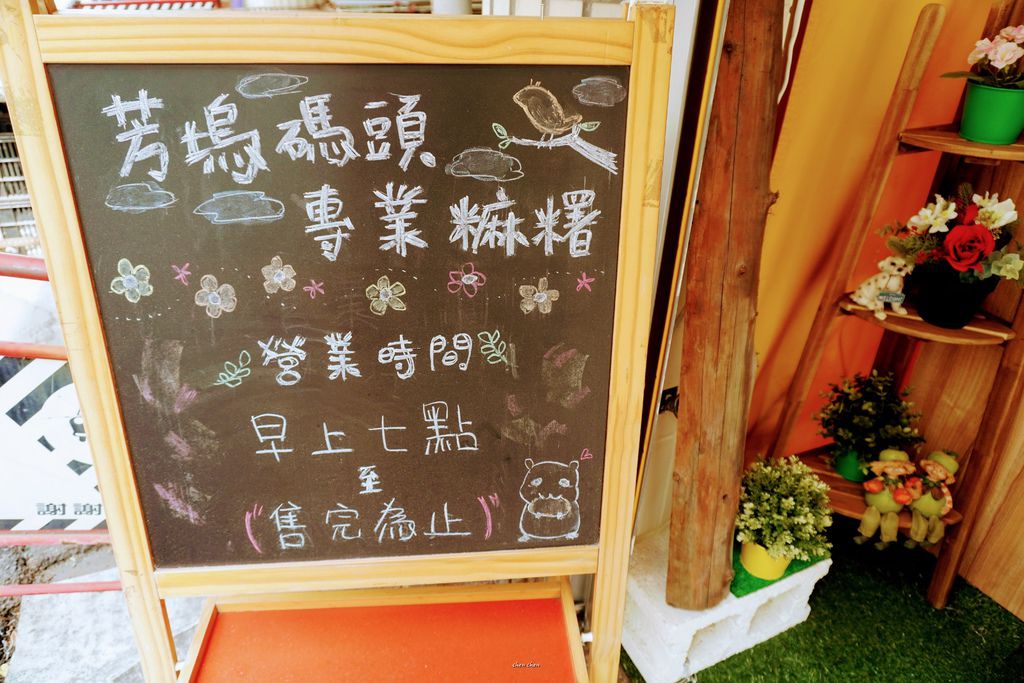 芳塢碼頭
專業糜糬
營業時間
早上七點
至
售完為止
謝謝
WELCOME
chen chen